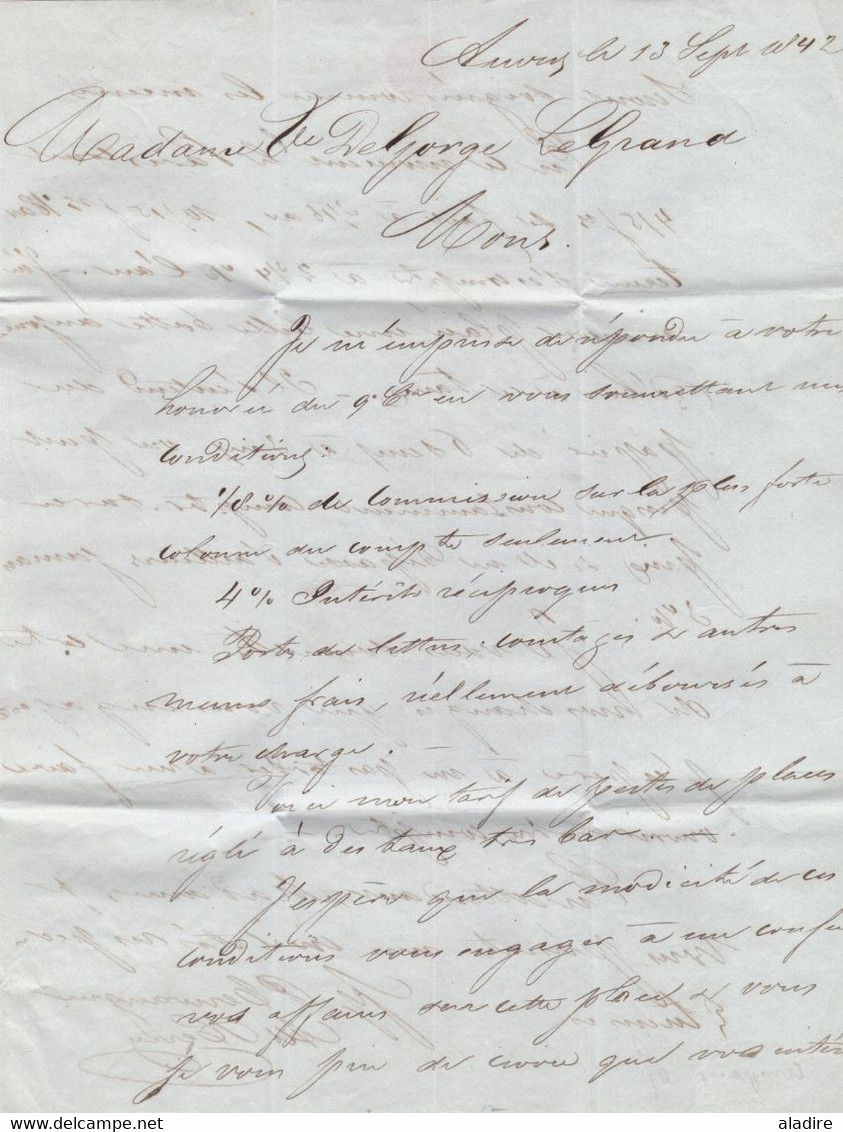 Anvers le 13 Sept 1842
Madame Ve DeGorge LeGrand
Mons.
Je m'empresse de répondre à votre
honorée du 9 Ct en vous soumettant mes
conditions:
1/8 % de Commission sur la plus forte
colonne du compte seulement.
4 % Intérêts réciproques
Ports de lettres, courtages & autres
menus frais, réellement déboursés à
votre charge.
Voici mon tarif de pertes de places
réglé à des taux très bas —
J'espère que la modicité de ces
conditions vous engager à me confier
vos affaires sur cette place & vous
Je vous prie de croire que vos intér
aladire